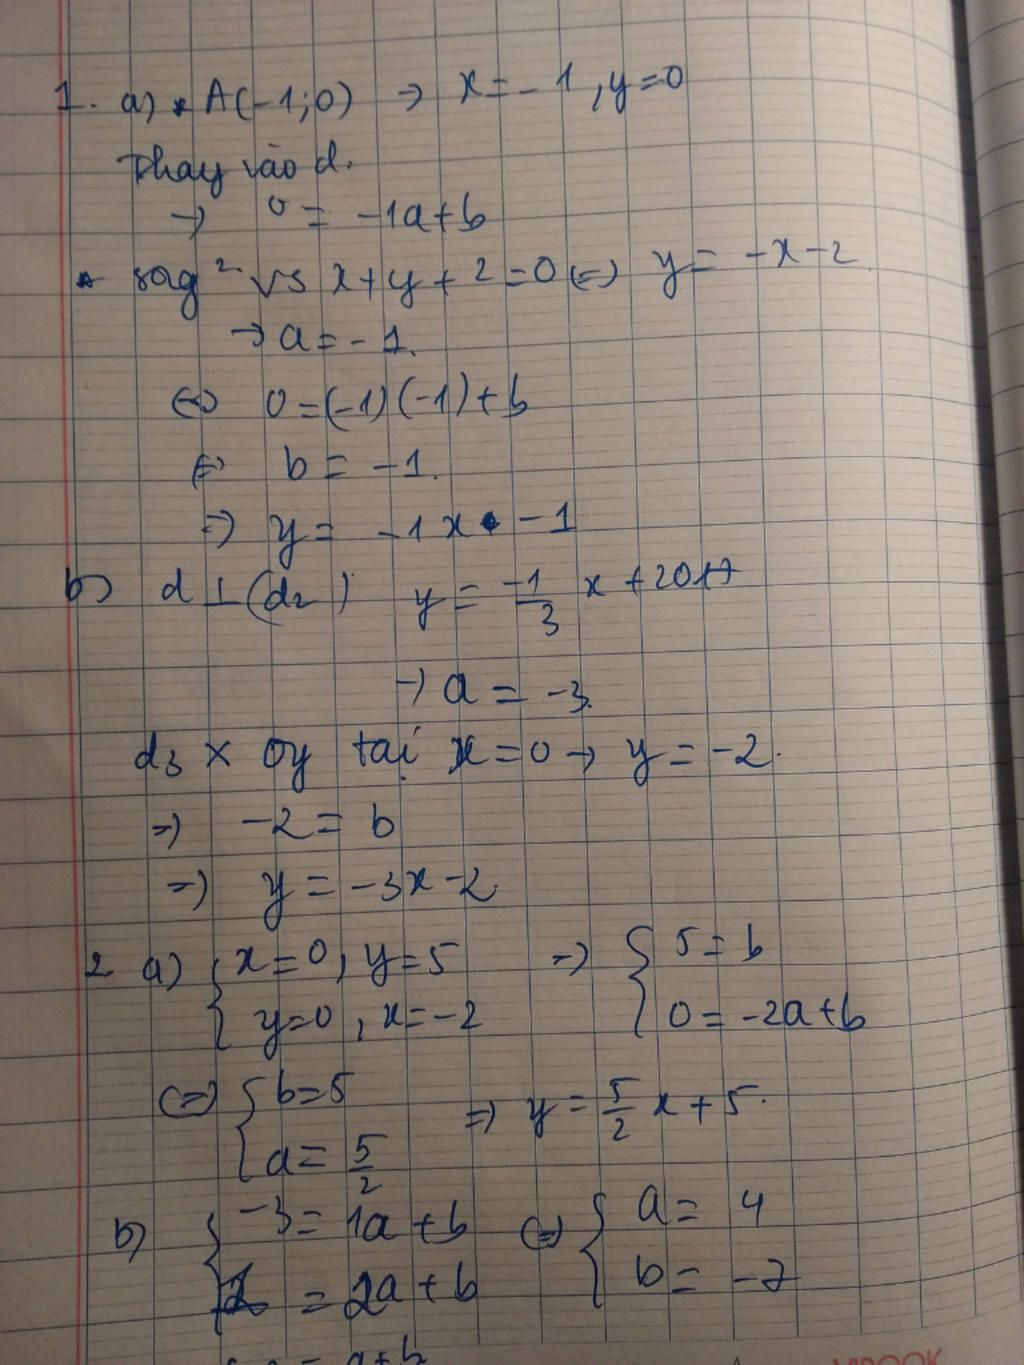 1. a) * A(-1;0) → x = -1, y=0
Thay vào d.
→ 0 = -1a+b
* sog² vs x+y+2=0 (=) y = -x-2
→ a = -1.
<=> 0=(-1)(-1)+b
<=> b = -1.
=> y = -1x -1
b) d ⊥ (d₂) y = -1/3 x +2017
→ a = -3.
d₃ x oy tại x=0 → y = -2.
=> -2 = b
=> y = -3x-2
2 a) { x=0, y=5 => { 5 = b
y=0, x=-2 0 = -2a+b
<=> { b=5 => y = 5/2 x + 5.
a = 5/2
b) { -3 = 1a+b <=> { a = 4
= 2a+b b = -7
= a+b